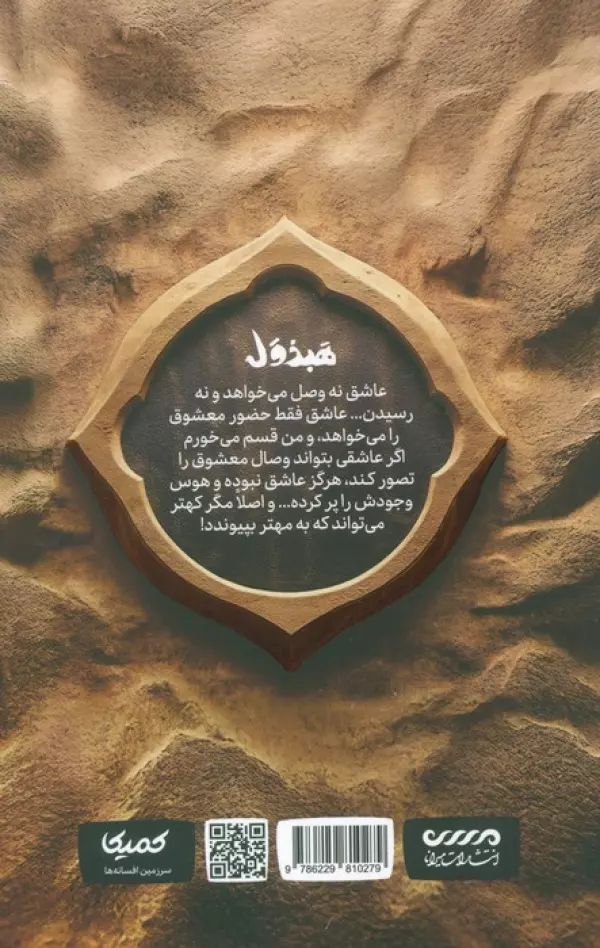 هَبذوَل
عاشق نه وصل می‌خواهد و نه
رسیدن... عاشق فقط حضور معشوق
را می‌خواهد، و من قسم می‌خورم
اگر عاشقی بتواند وصال معشوق را
تصور کند، هرگز عاشق نبوده و هوس
وجودش را پر کرده... و اصلاً مگر کهتر
می‌تواند که به مهتر بپیوندد!
کمیکا
سرزمین افسانه‌ها
9 786229 810279